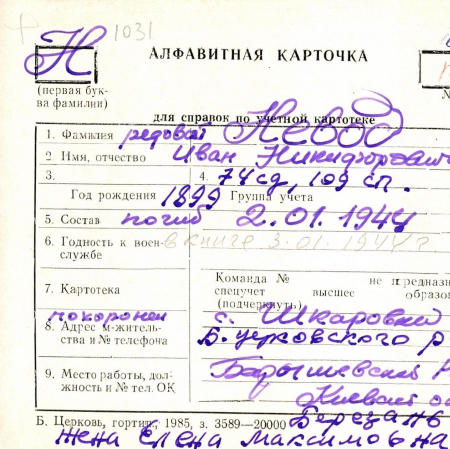 1031
Н
АЛФАВИТНАЯ КАРТОЧКА
(первая бук-
ва фамилии)
для справок по учетной картотеке
1. Фамилия редовой Невод
2. Имя, отчество Иван Никифорович
3. 4. 74 сд, 109 сп.
Год рождения 1899 Группа учета
5. Состав погиб 2.01.1944
6. Годность к воен- в книге 3.01.1944 г
службе
7. Картотека
Команда № не предназна
спецучет высшее образов
(подчеркнуть)
похоронен с. Шкаровка
8. Адрес м-житель-
ства и № телефона Б. церковского р
9. Место работы, дол-
жность и № тел. ОК Барышевский
Киевой об
Березань
Б. Церковь, гортип., 1985, з. 3589—20000
жена Елена Максимовна